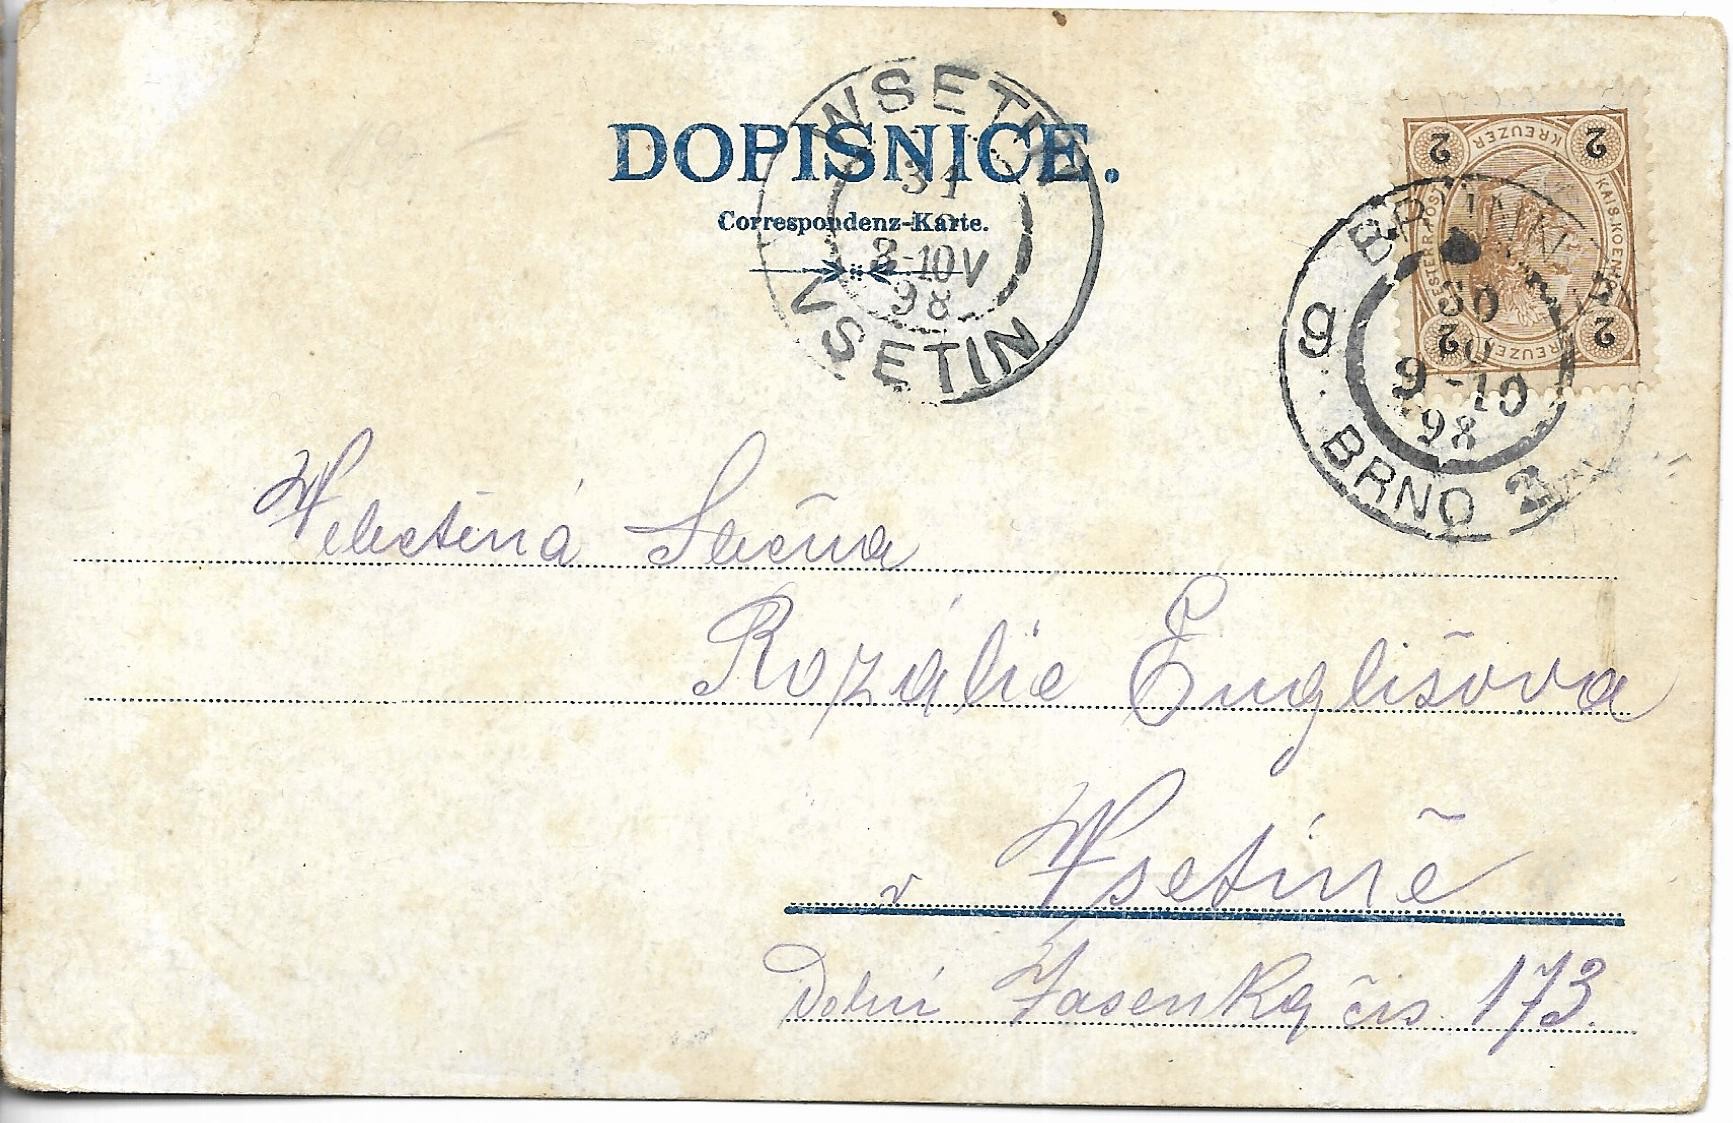 DOPISNICE.
Correspondenz-Karte.
WSETIN
31
8-10V
98
VSETIN
2 KREUZER 2
KAIS. KOENIGL.
2 KREUZER 2
BRÜNN
30
9-10
98
g
BRNO 2
Welectěná Slečna
Rozálie Englišova
v Wsetíně
Dolní Jasenka čís. 173.